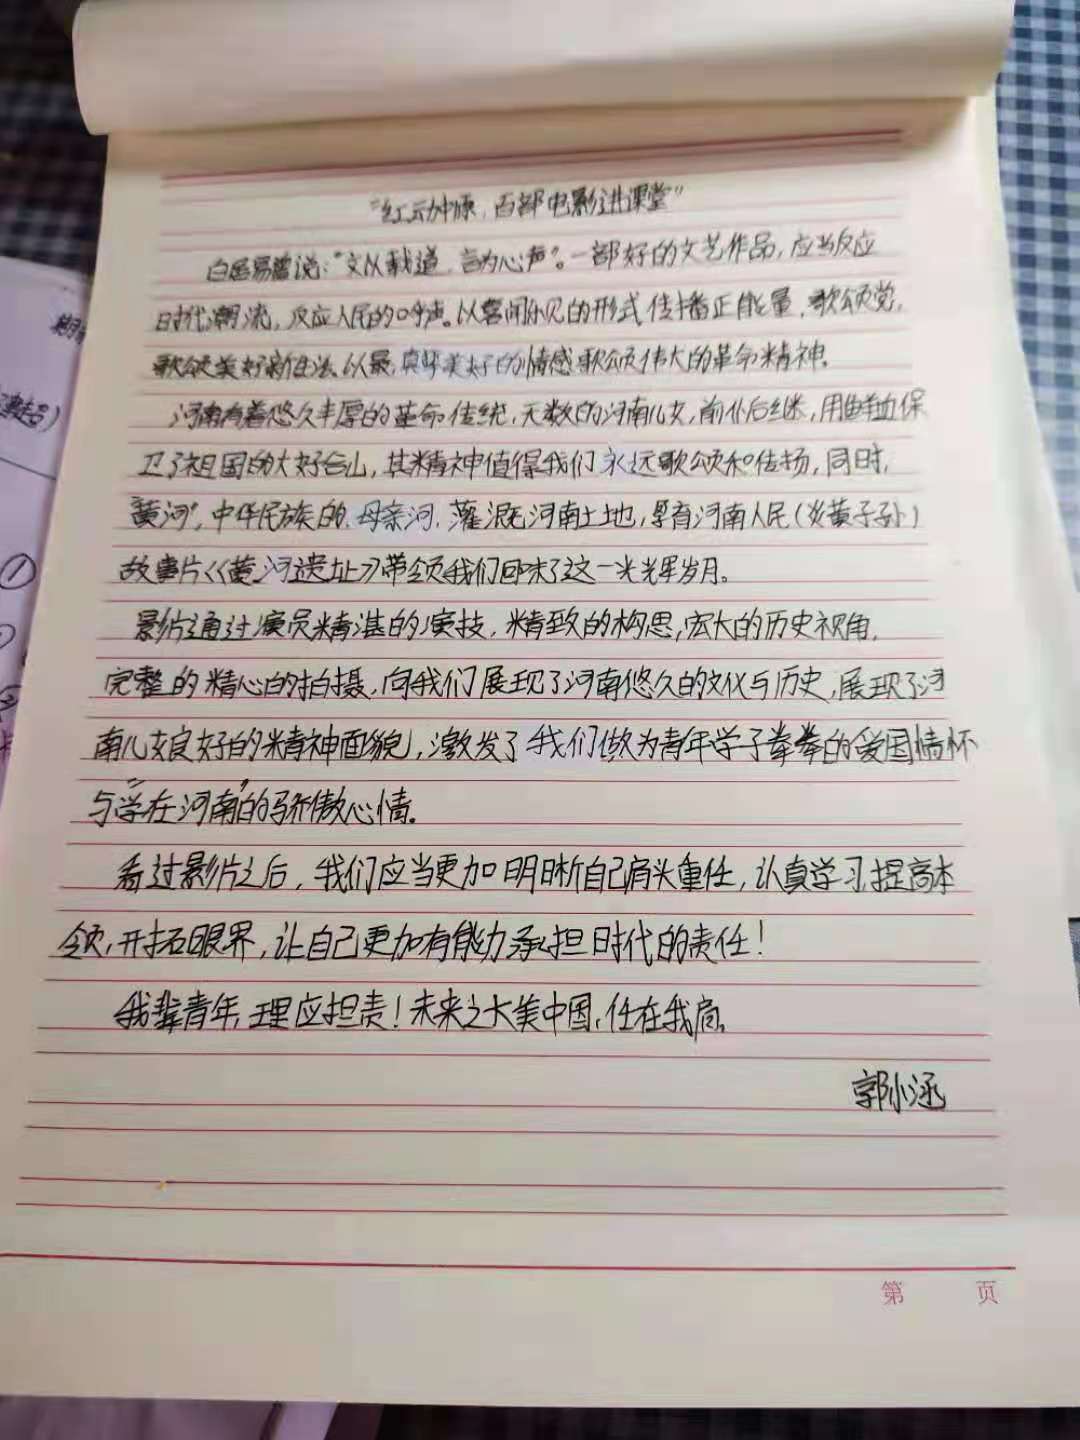 "红动中原，百部电影进课堂"
白居易曾说："文以载道，言为心声"。一部好的文艺作品，应当反应
时代潮流，反应人民的呼声。以喜闻乐见的形式传播正能量，歌颂党，
歌颂美好新生活。以最真挚美好的情感歌颂伟大的革命精神。
河南有着悠久丰厚的革命传统，无数的河南儿女，前仆后继，用鲜血保
卫了祖国的大好合山，其精神值得我们永远歌颂和传扬，同时，
"黄河"，中华民族的母亲河，灌溉河南土地，孕育河南人民（炎黄子孙）
故事片《黄河遗址》带领我们回味了这一光辉岁月。
影片通过演员精湛的演技，精致的构思，宏大的历史视角，
完整的精心的拍摄，向我们展现了河南悠久的文化与历史，展现了河
南儿女良好的精神面貌，激发了我们做为青年学子拳拳的爱国情怀
与"学在河南"的骄傲心情。
看过影片之后，我们应当更加明晰自己肩头重任，认真学习，提高本
领，开拓眼界，让自己更加有能力承担时代的责任！
我辈青年，理应担责！未来之大美中国，任在我肩。
郭小涵
第 页
①